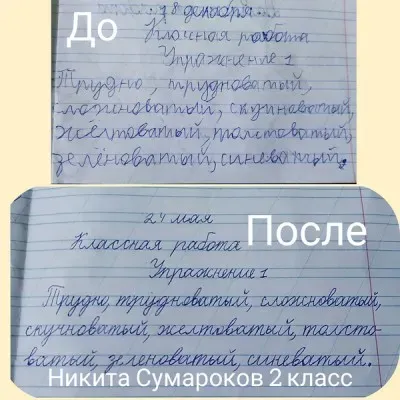 18 декабря
До
Клоссная работа
Упражнение 1
Трудно, трудноватый,
сложноватый, скучноватый,
жёлтоватый, толстоватый,
зелёноватый, синеватый.
24 мая
После
Классная работа
Упражнение 1
Трудно, трудноватый, сложноватый,
скучноватый, желтоватый, толсто-
ватый, зеленоватый, синеватый.
Никита Сумароков 2 класс